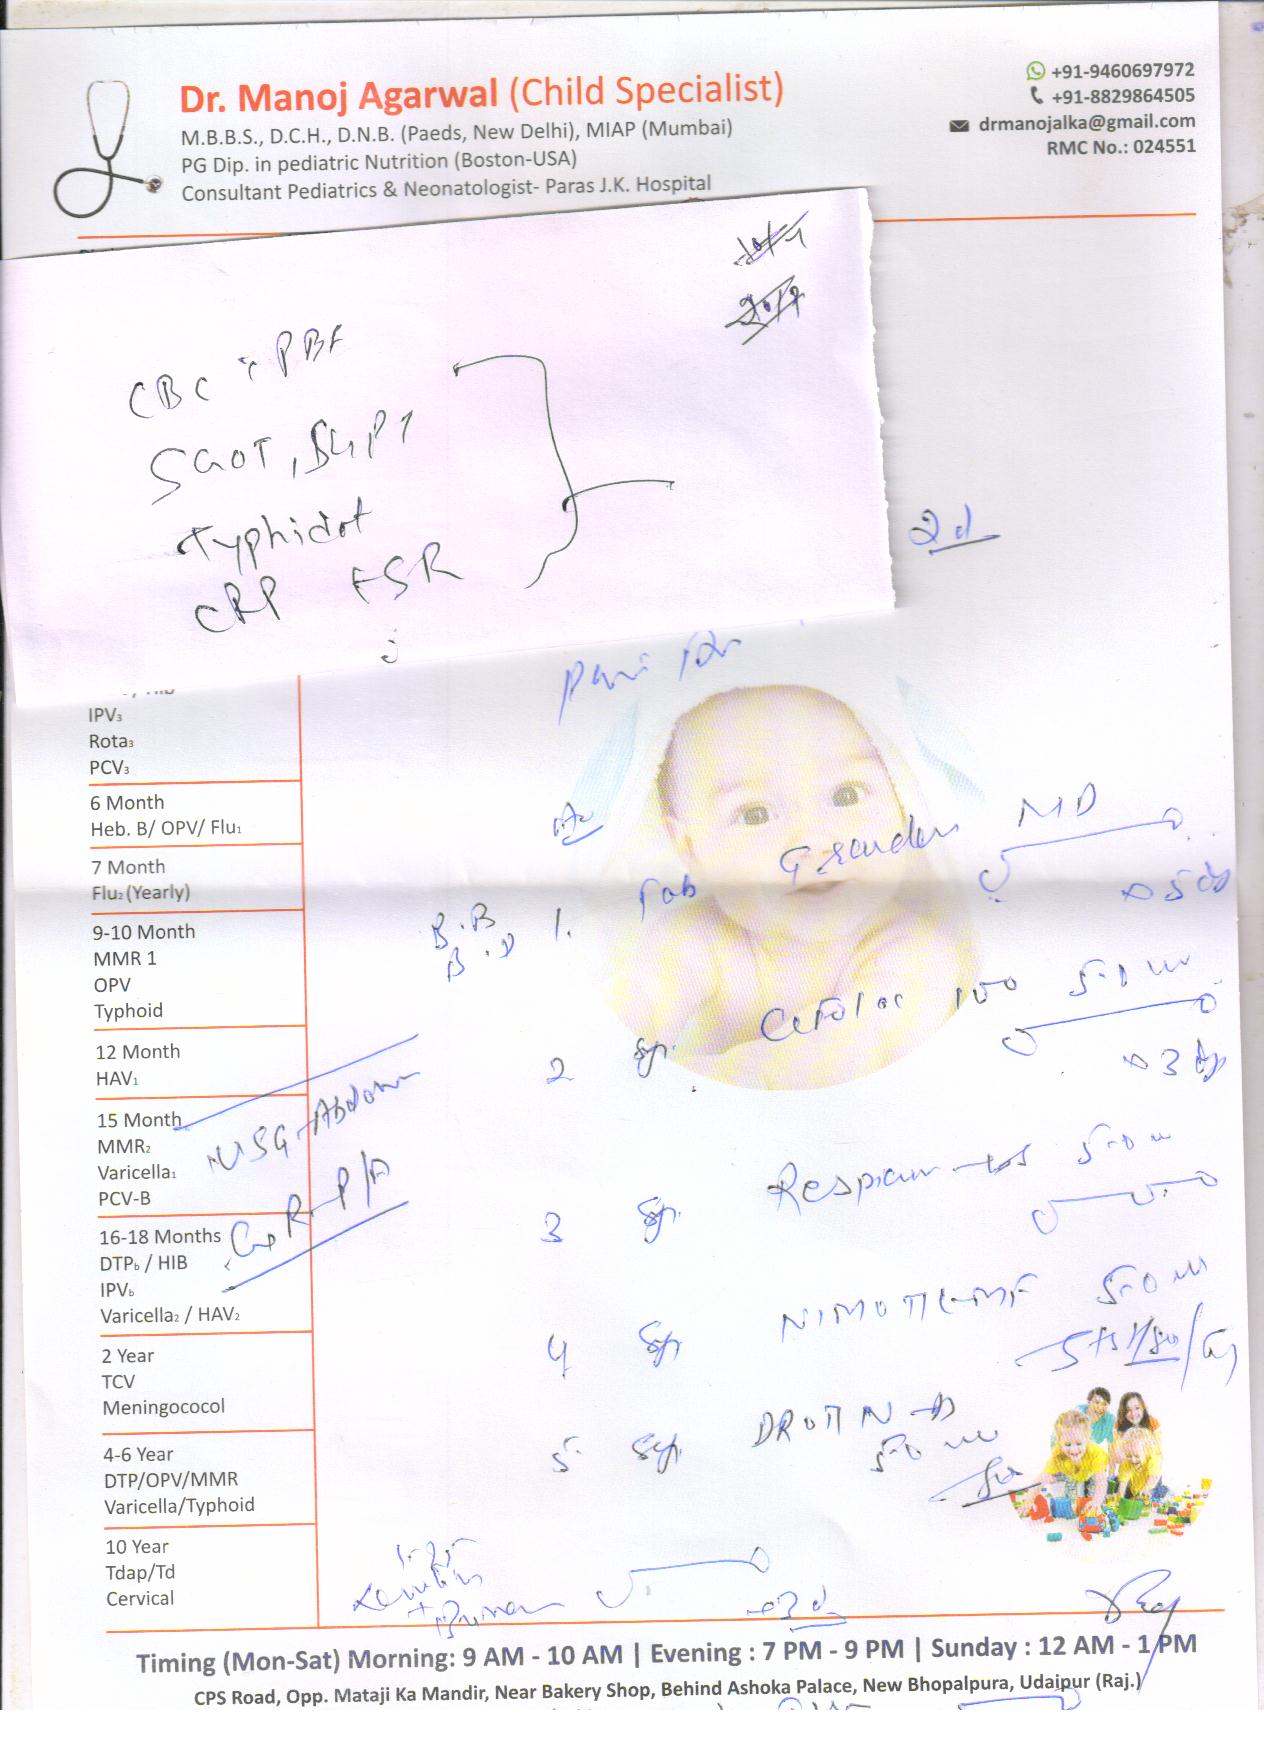 Dr. Manoj Agarwal (Child Specialist)
M.B.B.S., D.C.H., D.N.B. (Paeds, New Delhi), MIAP (Mumbai)
PG Dip. in pediatric Nutrition (Boston-USA)
Consultant Pediatrics & Neonatologist- Paras J.K. Hospital
+91-9460697972
+91-8829864505
drmanojalka@gmail.com
RMC No.: 024551
CBC PBF
SGOT, SGPT
Typhidot
CRP ESR
2d
IPV₃
Rota₃
PCV₃
6 Month
Heb. B/ OPV/ Flu₁
7 Month
Flu₂ (Yearly)
9-10 Month
MMR 1
OPV
Typhoid
12 Month
HAV₁
15 Month
MMR₂
Varicella₁
PCV-B
16-18 Months
DTPb / HIB
IPVb
Varicella₂ / HAV₂
2 Year
TCV
Meningococol
4-6 Year
DTP/OPV/MMR
Varicella/Typhoid
10 Year
Tdap/Td
Cervical
USG-Abdomen
MD
1. Tab
2 Syp. 100 5.0 ml
3 Syp. 5.0 ml
4 Syp. 5.0 ml
5 Syp. DROTIN
5.0 ml
Timing (Mon-Sat) Morning: 9 AM - 10 AM | Evening : 7 PM - 9 PM | Sunday : 12 AM - 1 PM
CPS Road, Opp. Mataji Ka Mandir, Near Bakery Shop, Behind Ashoka Palace, New Bhopalpura, Udaipur (Raj.)